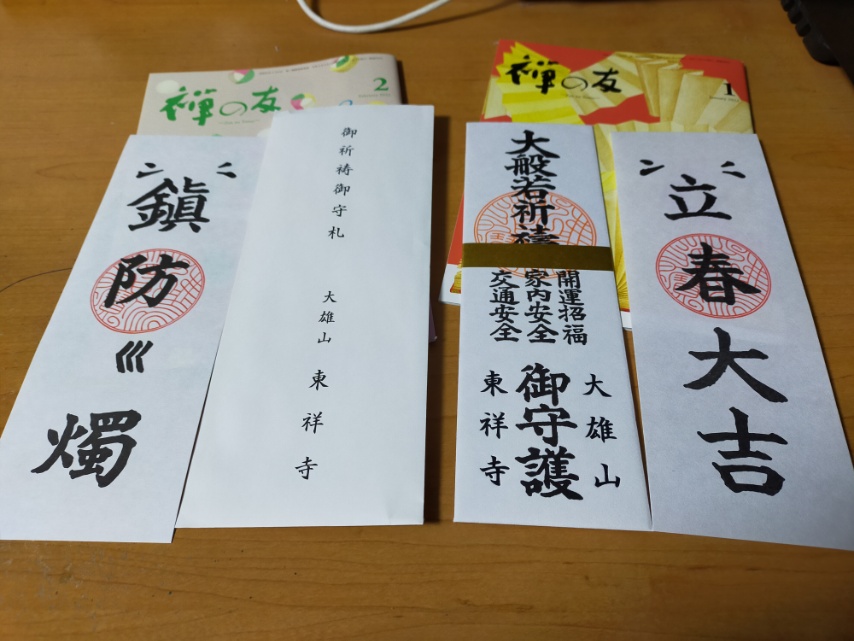 禅の友
2
禅の友
1
鎮
防
巛
燭
御祈祷御守札
大雄山
東祥寺
大般若祈祷
開運招福
家内安全
交通安全
大雄山
御守護
東祥寺
立春大吉